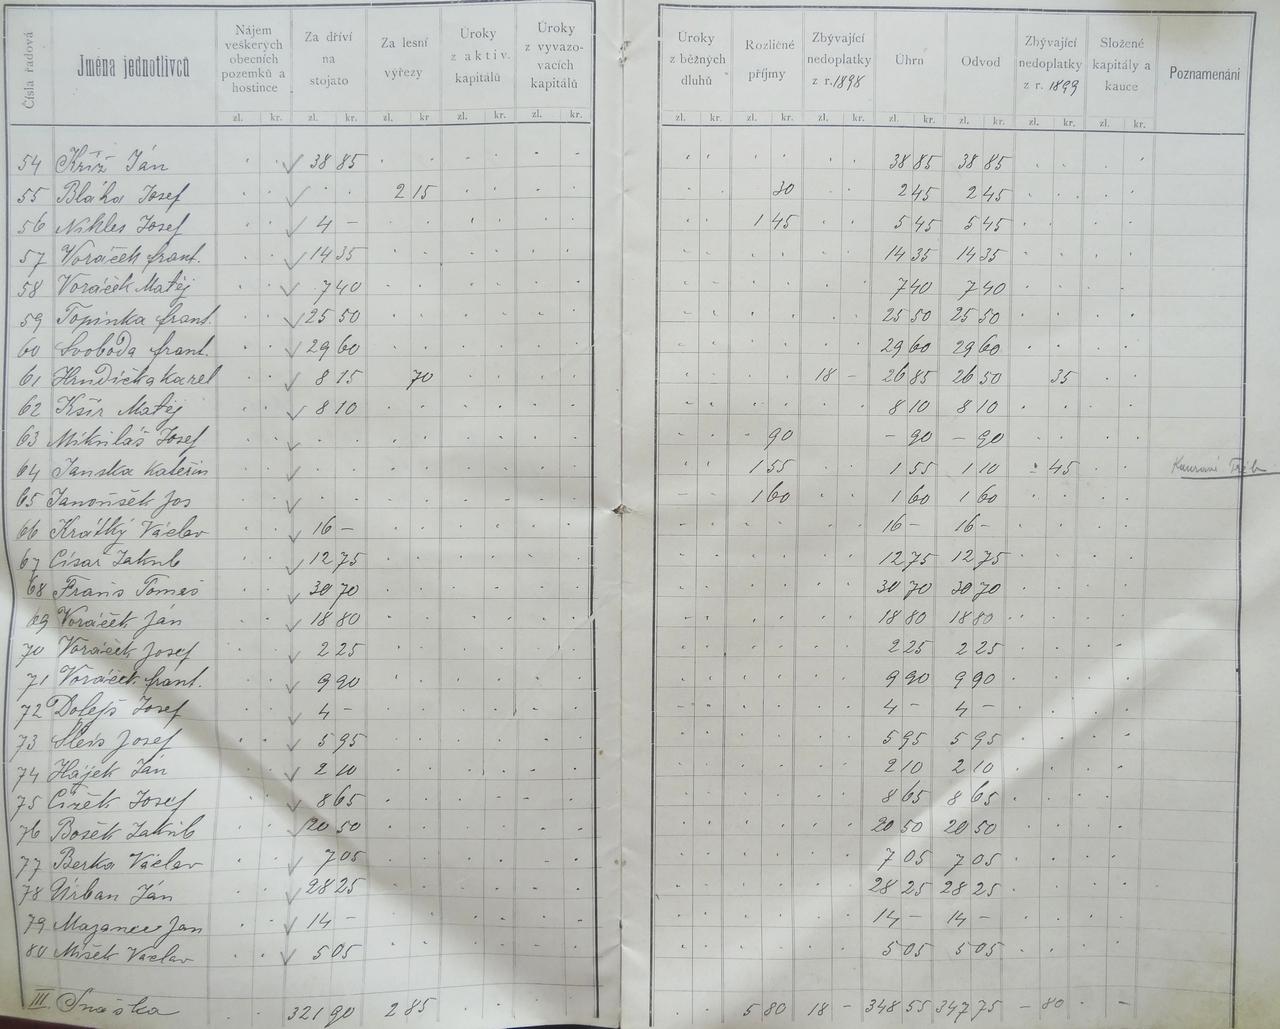 Čísla řadová | Jména jednotlivců | Nájem veškerých obecních pozemků a hostince zl. kr. | Za dříví na stojato zl. kr. | Za lesní výřezy zl. kr | Úroky z aktiv. kapitálů zl. kr. | Úroky z vyvazovacích kapitálů zl. kr. | Úroky z běžných dluhů zl. kr. | Rozličné příjmy zl. kr. | Zbývající nedoplatky z r. 1898 zl. kr. | Úhrn zl. kr. | Odvod zl. kr. | Zbývající nedoplatky z r. 1899 zl. kr. | Složené kapitály a kauce zl. kr. | Poznamenání
54 Kříž Ján √ 38 85 38 85 38 85
55 Bláha Josef √ 2 15 30 2 45 2 45
56 Nikles Josef √ 4 – 1 45 5 45 5 45
57 Voráček frant. √ 14 35 14 35 14 35
58 Voráček Matěj √ 7 40 7 40 7 40
59 Topinka frant. √ 25 50 25 50 25 50
60 Svoboda frant. √ 29 60 29 60 29 60
61 Hrudička Karel √ 8 15 70 18 – 26 85 26 50 35
62 Kšír Matěj √ 8 10 8 10 8 10
63 Mikuláš Josef √ 90 – 90 – 90
64 Janska Kateřin √ 1 55 1 55 1 10 45
65 Janoušek Jos √ 1 60 1 60 1 60
66 Krátký Václav √ 16 – 16 – 16 –
67 Císař Jakub √ 12 75 12 75 12 75
68 Franis Tomeš √ 30 70 30 70 30 70
69 Voráček Ján √ 18 80 18 80 18 80
70 Voráček Josef √ 2 25 2 25 2 25
71 Voráček frant. √ 9 90 9 90 9 90
72 Dolejš Josef √ 4 – 4 – 4 –
73 Josef √ 5 95 5 95 5 95
74 Hájek Ján √ 2 10 2 10 2 10
75 Čížek Josef √ 8 65 8 65 8 65
76 Bosek Jakub √ 20 50 20 50 20 50
77 Berka Václav √ 7 05 7 05 7 05
78 Urban Ján √ 28 25 28 25 28 25
79 Mazanec Jan √ 14 – 14 – 14 –
80 Mišek Václav √ 5 05 5 05 5 05
III. Snáška 321 90 2 85 5 80 18 – 348 55 347 75 – 80 –